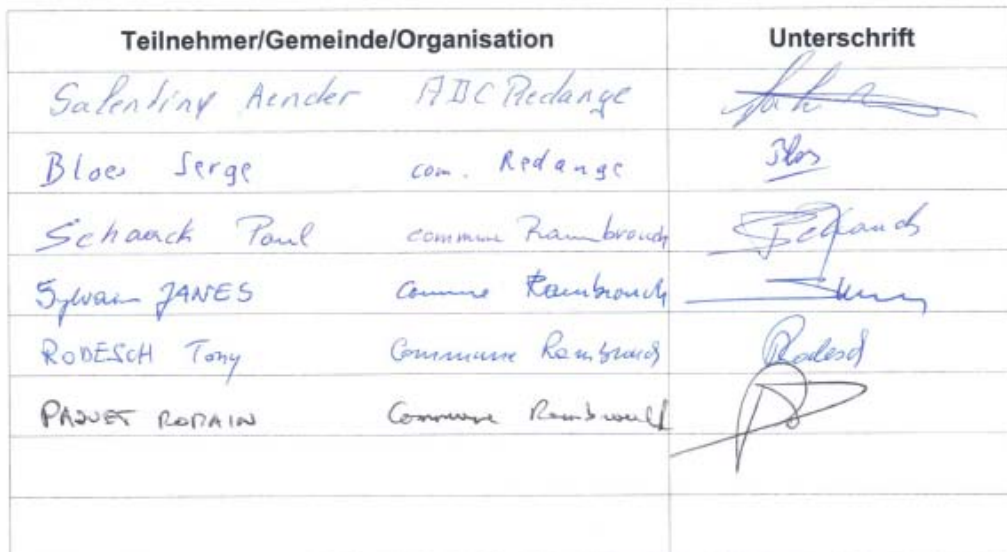 Teilnehmer/Gemeinde/Organisation Unterschrift
Salentiny Aender Redange
Bloes Serge com. Redange Bloes
Schaack Paul commune Rambrouch Schaack
Sylvain JANES Commune Rambrouch
RODESCH Tony Commune Rambrouch Rodesch
PAQUET ROMAIN Commune Rambrouch